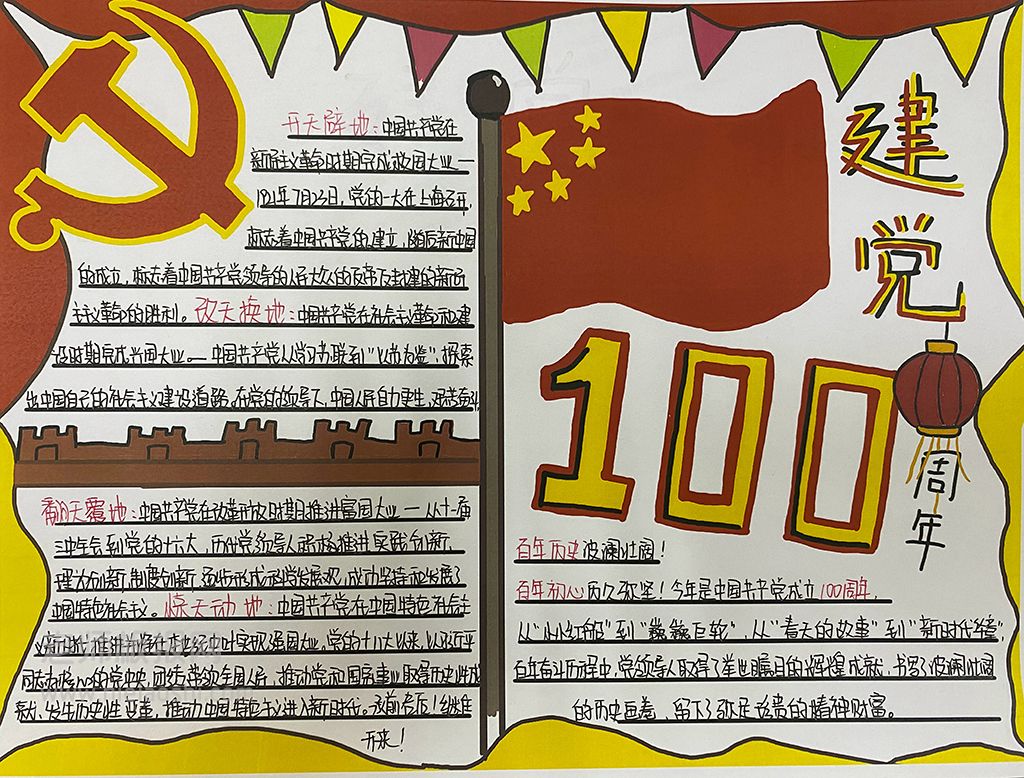 开天辟地：中国共产党在
新民主义革命时期完成救国大业一
1921年7月23日，党的一大在上海召开，
标志着中国共产党的建立，随后新中国
的成立，标志着中国共产党领导的人民大众的反帝反封建的新民
主主义革命的胜利。改天换地：中国共产党在社会主义革命和建
设时期完成兴国大业。一中国共产党从学习苏联到“以苏为鉴”，探索
出中国自己的社会主义建设道路，在党的领导下，中国人民自力更生，艰苦奋斗
翻天覆地：中国共产党在改革开放时期推进富国大业一从十一届
三中全会到党的十六大，历代党领导人积极推进实践创新、
理大创新，制度创新，逐步形成科学发展观，成功坚持和发展了
中国特色社会主义。惊天动地：中国共产党在中国特色社会主
党的十八大以来，以习近平
同志为核心的党中央，团结带领全国人民，推动党和国家事业取得历史性成
就、发生历史性变革，推动中国特色主义进入新时代。承前启后！继往
开来！
建党
100
周年
百年历史波澜壮阔！
百年初心历久弥坚！今年是中国共产党成立100周年，
从“小小红船”到“巍巍巨轮”，从“春天的故事”到“新时代
百年奋斗历程中，党领导人取得了举世瞩目的辉煌成就，书写了波澜壮阔
的历史画卷，留下了弥足珍贵的精神财富。